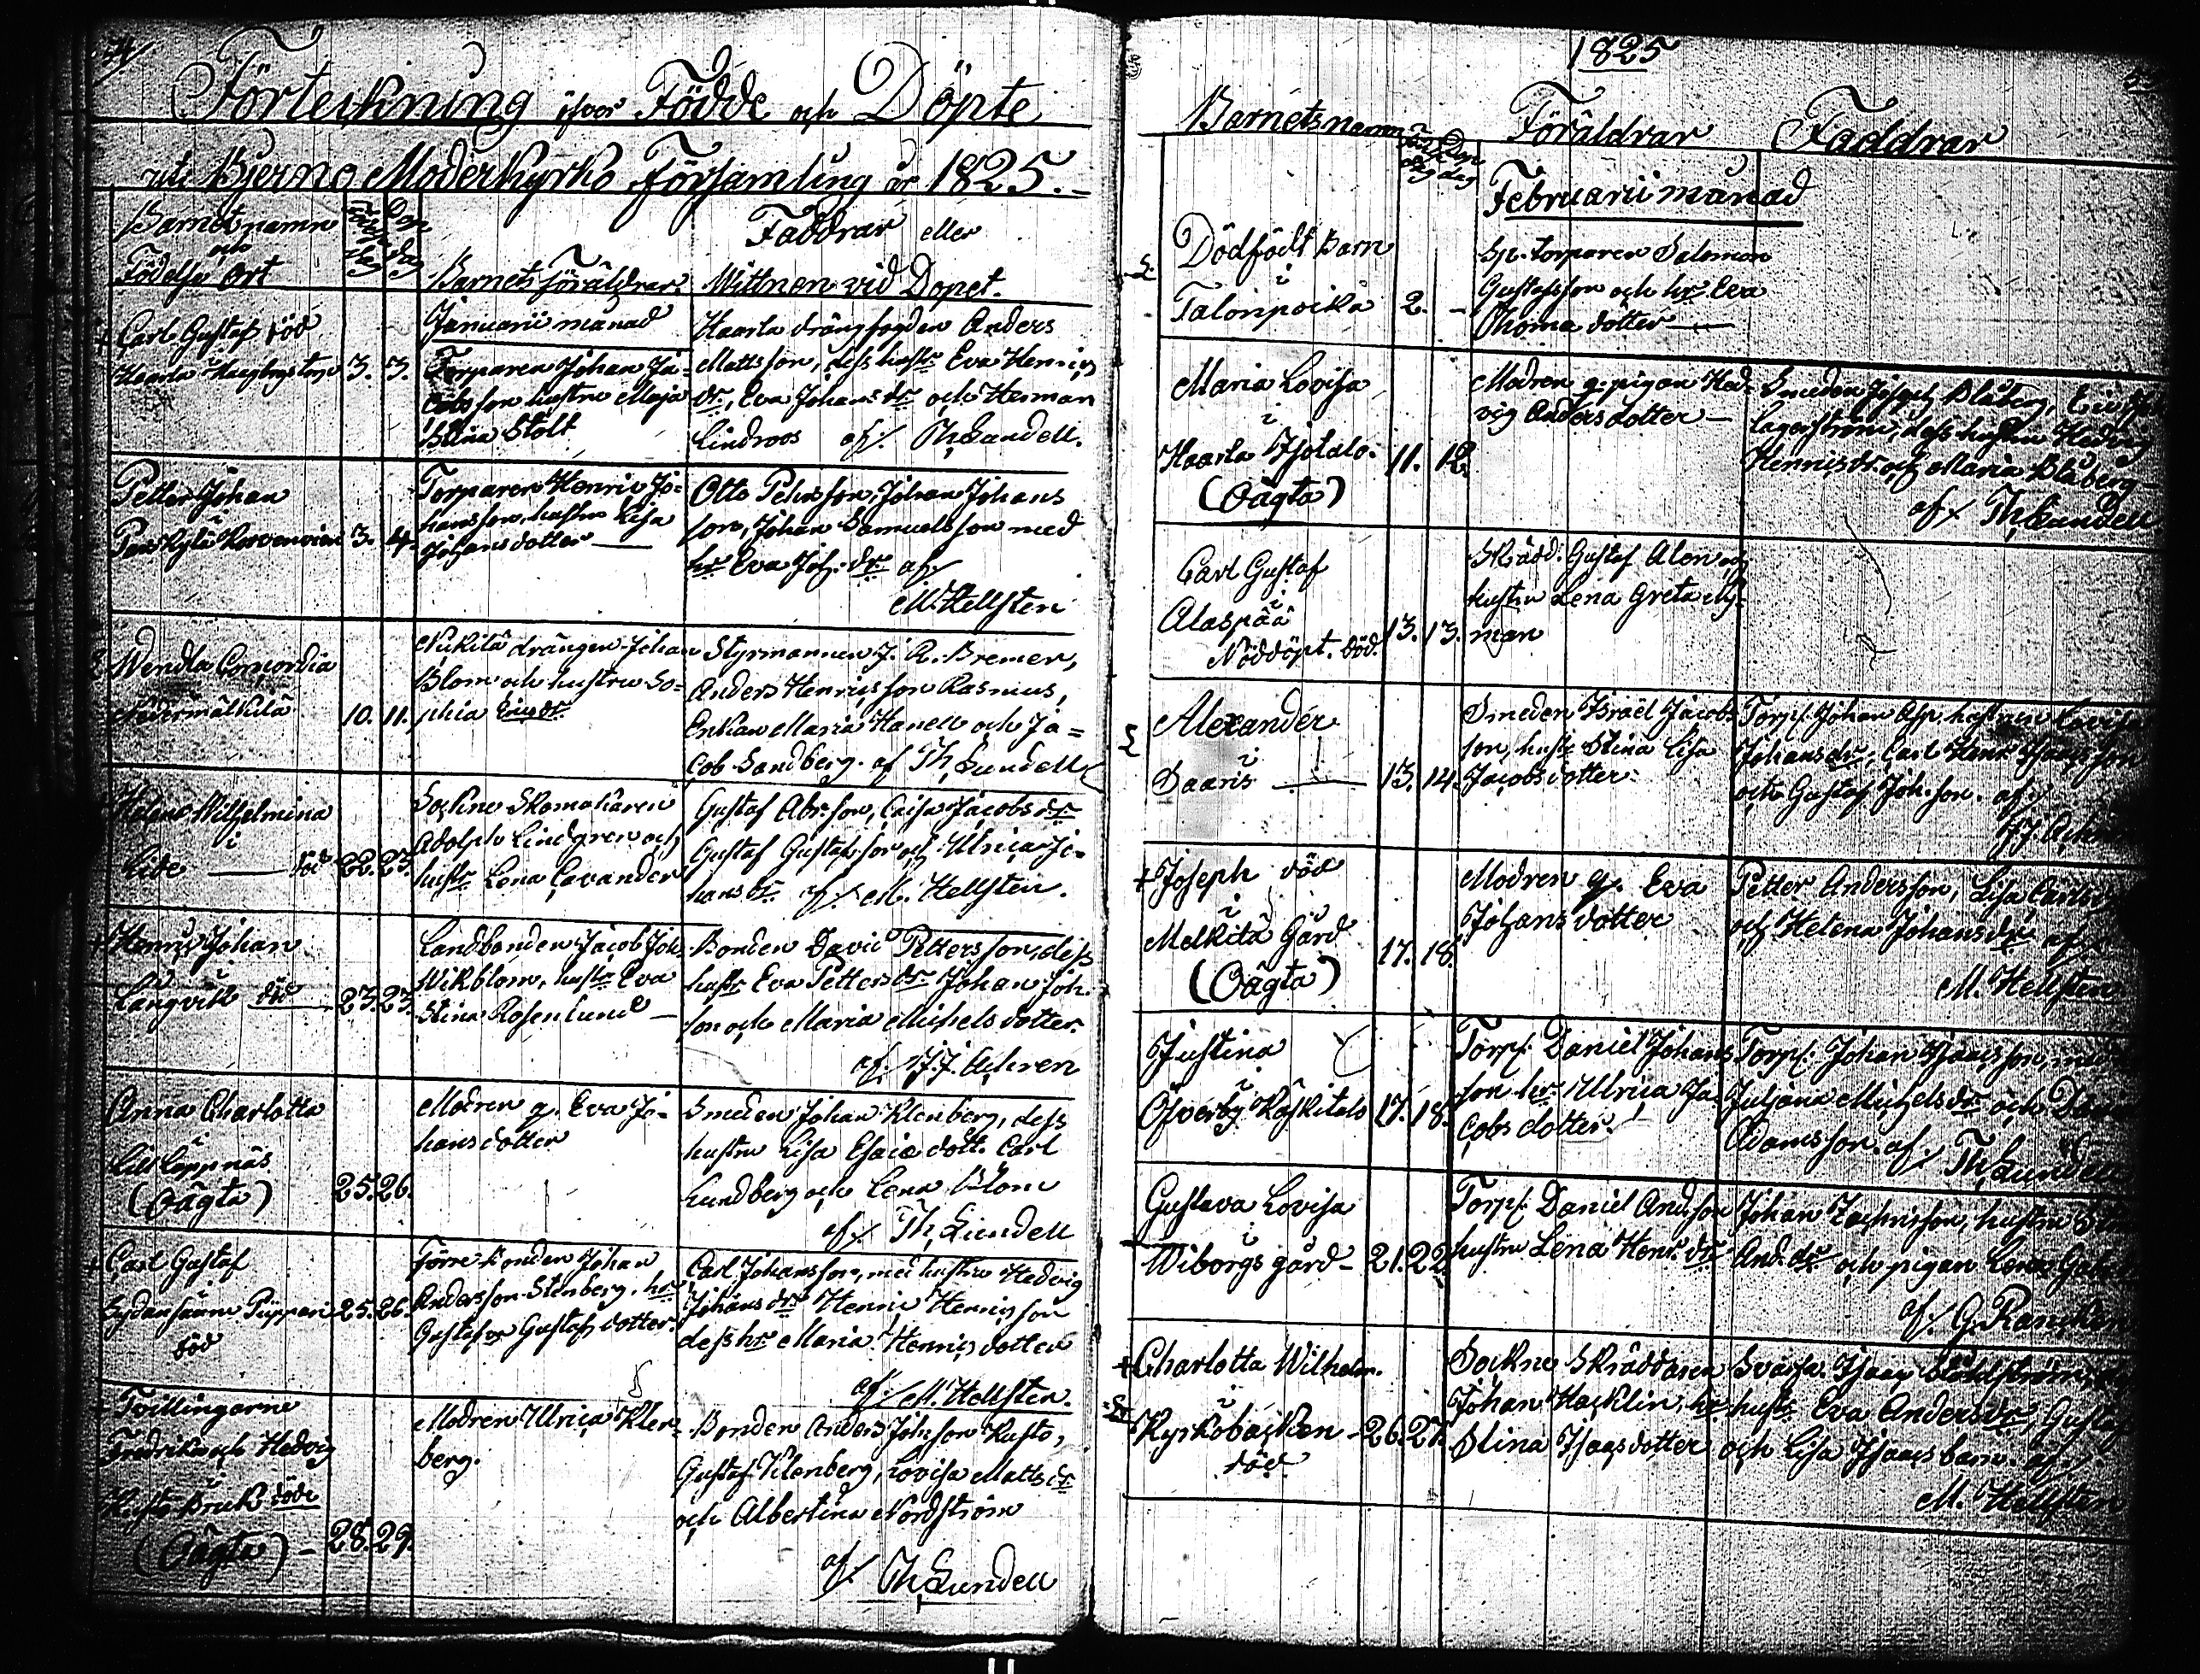 54
Förteckning öfver Födde och Döpte
uti Bjerno Moderkyrko Församling år 1825.
Barnets namn
och
Födelse Ort
Födelse dag
Dop dag
Barnets föräldrar
Faddrar eller
Wittnen vid Dopet.
Januarii månad
+ Carl Gustaf död
Haarla
3. 3.
Torparen Johan Ja=
cobsson hustru Maja
Stina Stolt
Haarla drängfogden Anders
Mattsson, dess hustr Eva Henrics
dr, Eva Johans dr och Herman
Lindroos af/. Th Lundell.
Petter Johan
i
3. 4.
Torparen Henric Jo=
hansson, hustru Lisa
Johansdotter
Otto Pehrsson, Johan Johans
son, Johan Samuelsson med
hr Eva Joh. dr af/
M. Hellsten
Wendla Concordia
i
Nedermälkilä
10. 11.
drängen Johan
Blom och hustru So=
phia Erics dr.
Styrmannen J. A. Bremer,
Anders Henricsson Rasmus,
Enkan Maria Hanell och Ja=
cob Sandberg. af Th Lundell
Helena Wilhelmina
i
Lide död
22. 23.
Sockne Skomakaren
Adolph Lindgren och
hustr Lena Cavander
Gustaf Abr.son, Caisa Jacobs dr
Gustaf Gustafsson och Ulrica Jo=
hans dr. af/. M. Hellsten.
+ Henric Johan
i
Långvik död
23. 23.
Landbonden Jacob Joh.
Wikblom, hustr Eva
Stina Rosenlund
Bonden David Pettersson, dess
hustr Eva Petters dr Johan Joh.
son och Maria Michelsdotter.
af/. J. J. Achren
Anna Charlotta
i
Lill Lappnäs
(Oägta)
25. 26.
Modren q. Eva Jo=
hansdotter
Smeden Johan Klenberg, dess
hustru Lisa Esaiæ dott. Carl
Lundberg och Lena Blom
af/. Th Lundell
Carl Gustaf
i
Pippari
död
25. 26.
Johan
Andersson Stenberg, hr
Gustafva Gustafsdotter.
Carl Johansson, med hustru Hedvig
Johans dr Henric Henricsson
dess hr Maria Henricsdotter
af/. M. Hellsten.
+ Tvillingarne
Fredrika och Hedvig
i
Kusto Bruk döde
(Oägta)
28. 29.
Modren Ulrica Klen=
berg.
Bonden Anders Johnson Kusto,
Gustaf Vilenberg, Lovisa Matts dr
och Albertina Nordström
af/. Th Lundell
1825
Barnets namn
Födelse dag
Dop dag
Föräldrar
Faddrar
Februarii månad
Dödfödt Barn
i
Talonpoika
2. –
Sp. torparen Salomon
Gustafsson och hr Eva
Thomædotter
Maria Lovisa
i
Haarla Isotalo.
(Oägta)
11. 12.
Modren q. pigan Hed=
vig Andersdotter
Smeden Joseph Blåberg,
Lagerström, dess hustru Hedvig
Henrics dr. och Maria Blåberg
af/. Th Lundell
Carl Gustaf
i
Alaspää
Nöddöpt. död.
13. 13.
Skrädd. Gustaf Alen och
hustru Lena Greta Ny=
man
Alexander
i
Saaris
13. 14.
Smeden Israel Jacobs
son, hustr Stina Lisa
Jacobsdotter.
Torp. Johan Asp. hustrun
Johans dr, Carl Henr. Isaacsson
och Gustaf Joh.son. af/.
J. J. Achren
+ Joseph död
i
Melkilä Gård
(Oägta)
17. 18.
Modren q. Eva
Johansdotter
Petter Andersson, Lisa Carls dr
och Helena Johans dr af/.
M. Hellsten
Justina
i
Öfverby Koskitalo
17. 18.
Torp. Daniel Johans
son hr Ulrica Ja
cobsdotter.
Torp. Johan Isaacsson, med
Juliana Michels dr och
Adamsson. af/. Th Lundell
Gustava Lovisa
i
Wiborgs gård
21. 22.
Torp. Daniel And.son
hustru Lena Henr. dr
Johan Zachrisson, hustru
And. dr och pigan Lena
af/. G. Rancken
+ Charlotta Wilhelm.
i
Kyrkobacken
död
26. 27.
Sockne Skräddaren
Johan Hacklin, hr
Stina Isaacsdotter
Isaac Ståhlström,
hustr Eva Anders dr, Gustaf
och Lisa Isaacs barn. af/.
M. Hellsten